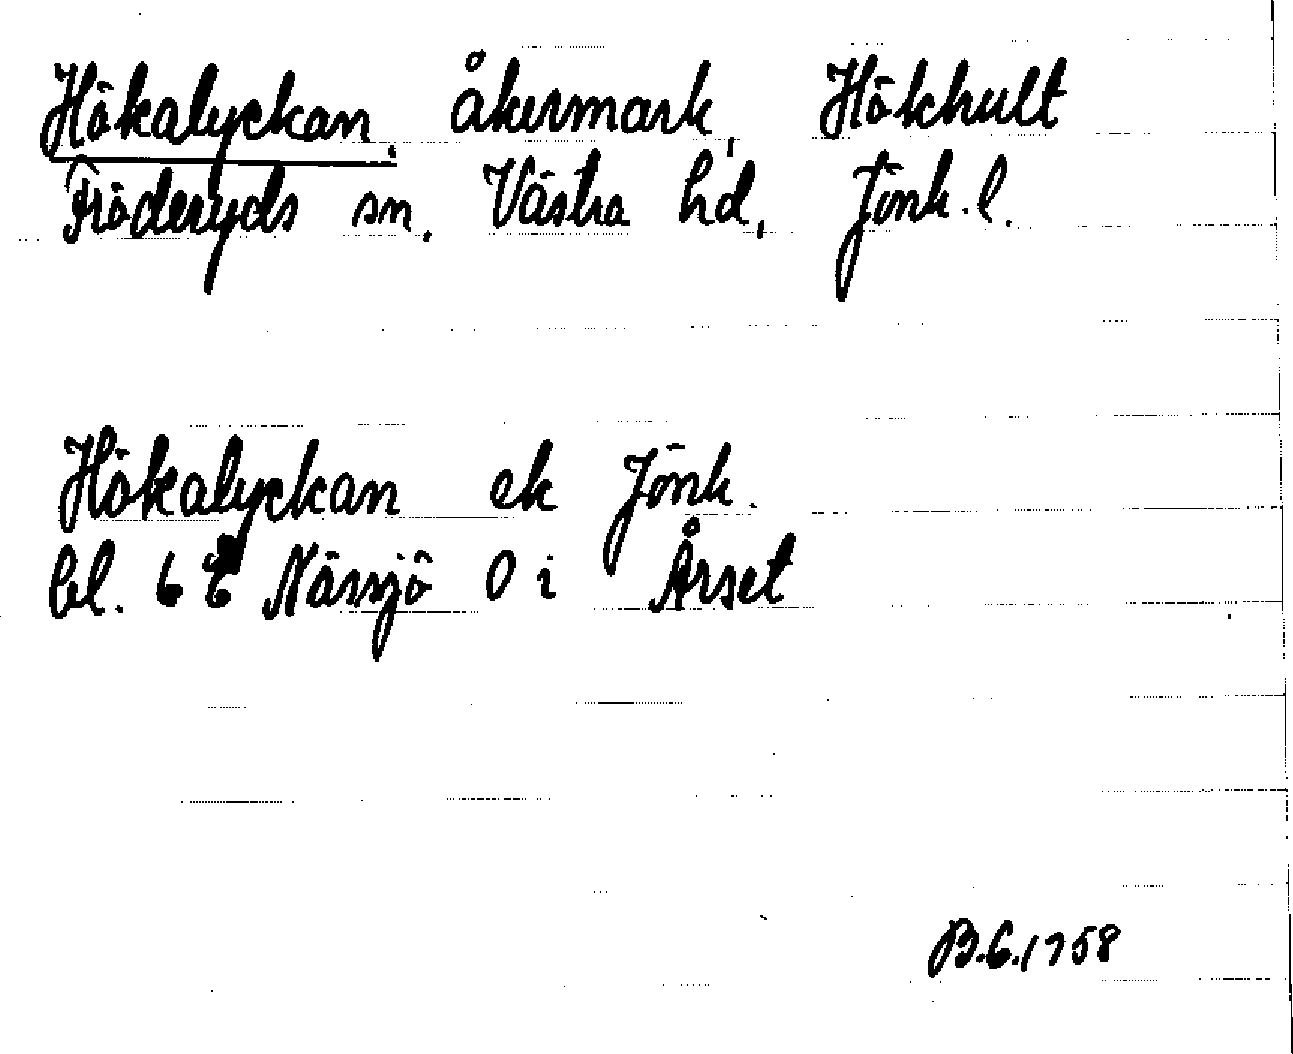 Hökalyckan, åkermark, Hökhult
Fröderyds sn, Västra hd, Jönk.l.
Hökalyckan ek Jönk.
bl. 6 E Nässjö 0 i Årset
B.G.1758